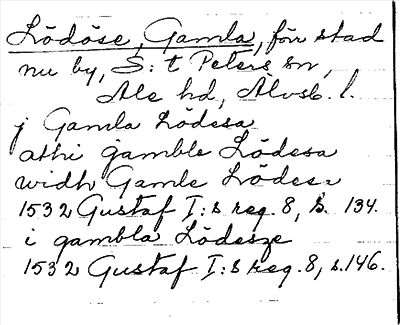 Lödöse, Gamla, för stad
nu by, S:t Peters sn,
Ale hd, Älvsb. l.
j Gamla Lödesa
athi gamble Lödesa
widh Gamle Lödes=
1532 Gustaf I:s reg. 8, s. 134.
i gambla Lödesze
1532 Gustaf I:s reg. 8, s. 146.